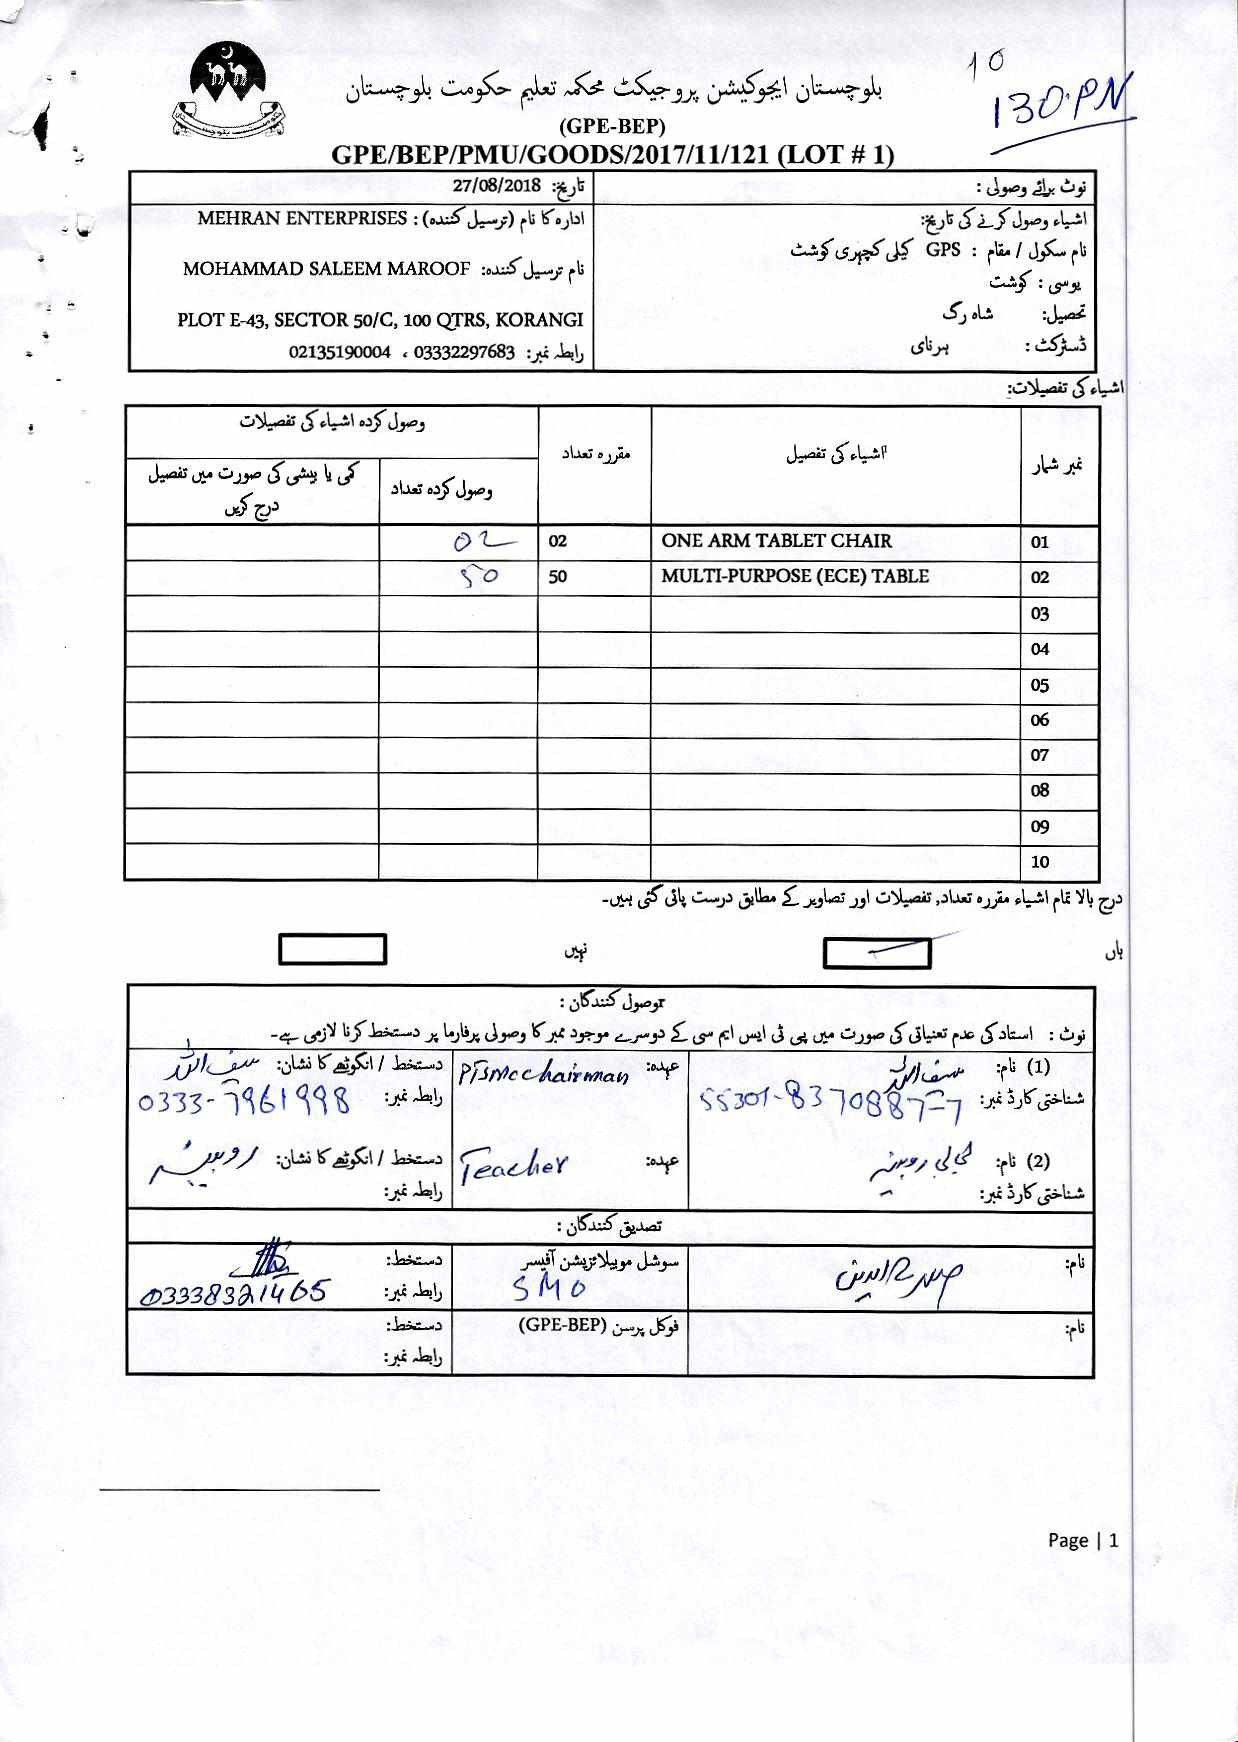 10
130.PN
بلوچستان ایجوکیشن پروجیکٹ محکمہ تعلیم حکومت بلوچستان
(GPE-BEP)
GPE/BEP/PMU/GOODS/2017/11/121 (LOT # 1)
نوٹ برائے وصولی :
تاریخ: 27/08/2018
اشیاء وصول کرنے کی تاریخ:
نام سکول / مقام : GPS کیلی کچہری کوشٹ
یوسی : کوشت
تحصیل: شاہ رگ
ڈسٹرکٹ : ہرنای
ادارہ کا نام (ترسیل کنندہ) : MEHRAN ENTERPRISES
نام ترسیل کنندہ: MOHAMMAD SALEEM MAROOF
PLOT E-43, SECTOR 50/C, 100 QTRS, KORANGI
رابطہ نمبر: 03332297683 ، 02135190004
اشیاء کی تفصیلات:
نمبر شمار
اشیاء کی تفصیل
مقررہ تعداد
وصول کردہ اشیاء کی تفصیلات
وصول کردہ تعداد
کمی یا بیشی کی صورت میں تفصیل درج کریں
01 ONE ARM TABLET CHAIR 02 02
02 MULTI-PURPOSE (ECE) TABLE 50 50
03
04
05
06
07
08
09
10
درج بالا تمام اشیاء مقررہ تعداد, تفصیلات اور تصاویر کے مطابق درست پائی گئی ہیں۔
ہاں
نہیں
وصول کنندگان :
نوٹ : استاد کی عدم تعنیاتی کی صورت میں پی ٹی ایس ایم سی کے دوسرے موجود ممبر کا وصولی پرفارما پر دستخط کرنا لازمی ہے۔
(1) نام: سیف اللہ
عہدہ: PTSMC Chairman
دستخط / انگوٹھے کا نشان: سیف اللہ
شناختی کارڈ نمبر: 55301-8370887-7
رابطہ نمبر: 0333-7961998
(2) نام: بی بی روبینہ
عہدہ: Teacher
دستخط / انگوٹھے کا نشان: روبینہ
شناختی کارڈ نمبر:
رابطہ نمبر:
تصدیق کنندگان :
نام:
سوشل موبیلائزیشن آفیسر
SMO
دستخط:
رابطہ نمبر: 03338321465
نام:
فوکل پرسن (GPE-BEP)
دستخط:
رابطہ نمبر:
Page | 1